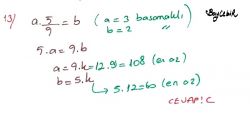 13) a. 5/9 = b ( a = 3 basamaklı
b = 2 "
5.a = 9.b
a = 9.k = 12.9 = 108 (en az)
b = 5.k
→ 5.12 = 60 (en az)
CEVAP: C